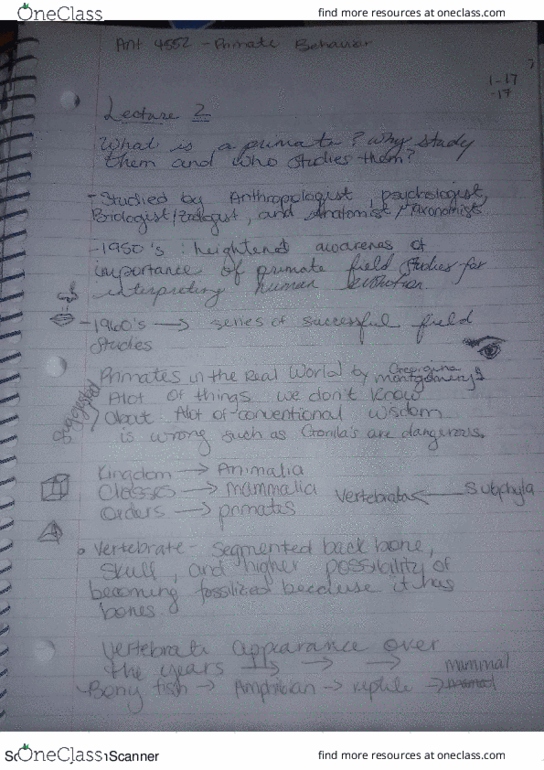 OneClass
find more resources at oneclass.com
Ant 4552 - Primate Behavior
1-17
-17
Lecture 2
What is a primate? Why study
them and who studies them?
- Studied by Anthropologist, psychologist,
Biologist/Zoologist, and Anatomist/Taxonomists
- 1950's : heightened awarenes of
importance of primate field studies for
interpreting human evolution
- 1960's → series of successful field
studies
Primates in the Real World by Georgina
montgomery
suggested
Alot of things we don't know
about. Alot of conventional wisdom
is wrong such as Gorrila's are dangerous.
Kingdom → Animalia
Classes → mammalia Vertebrata ← Subphyla
Orders → primates
Vertebrate - segmented back bone,
skull, and higher possibility of
becoming fossilized because it has
bones
Vertebrate appearance over
the years → → mammal
Bony fish → Amphibian → reptile →
OneClass
Scanner
find more resources at oneclass.com